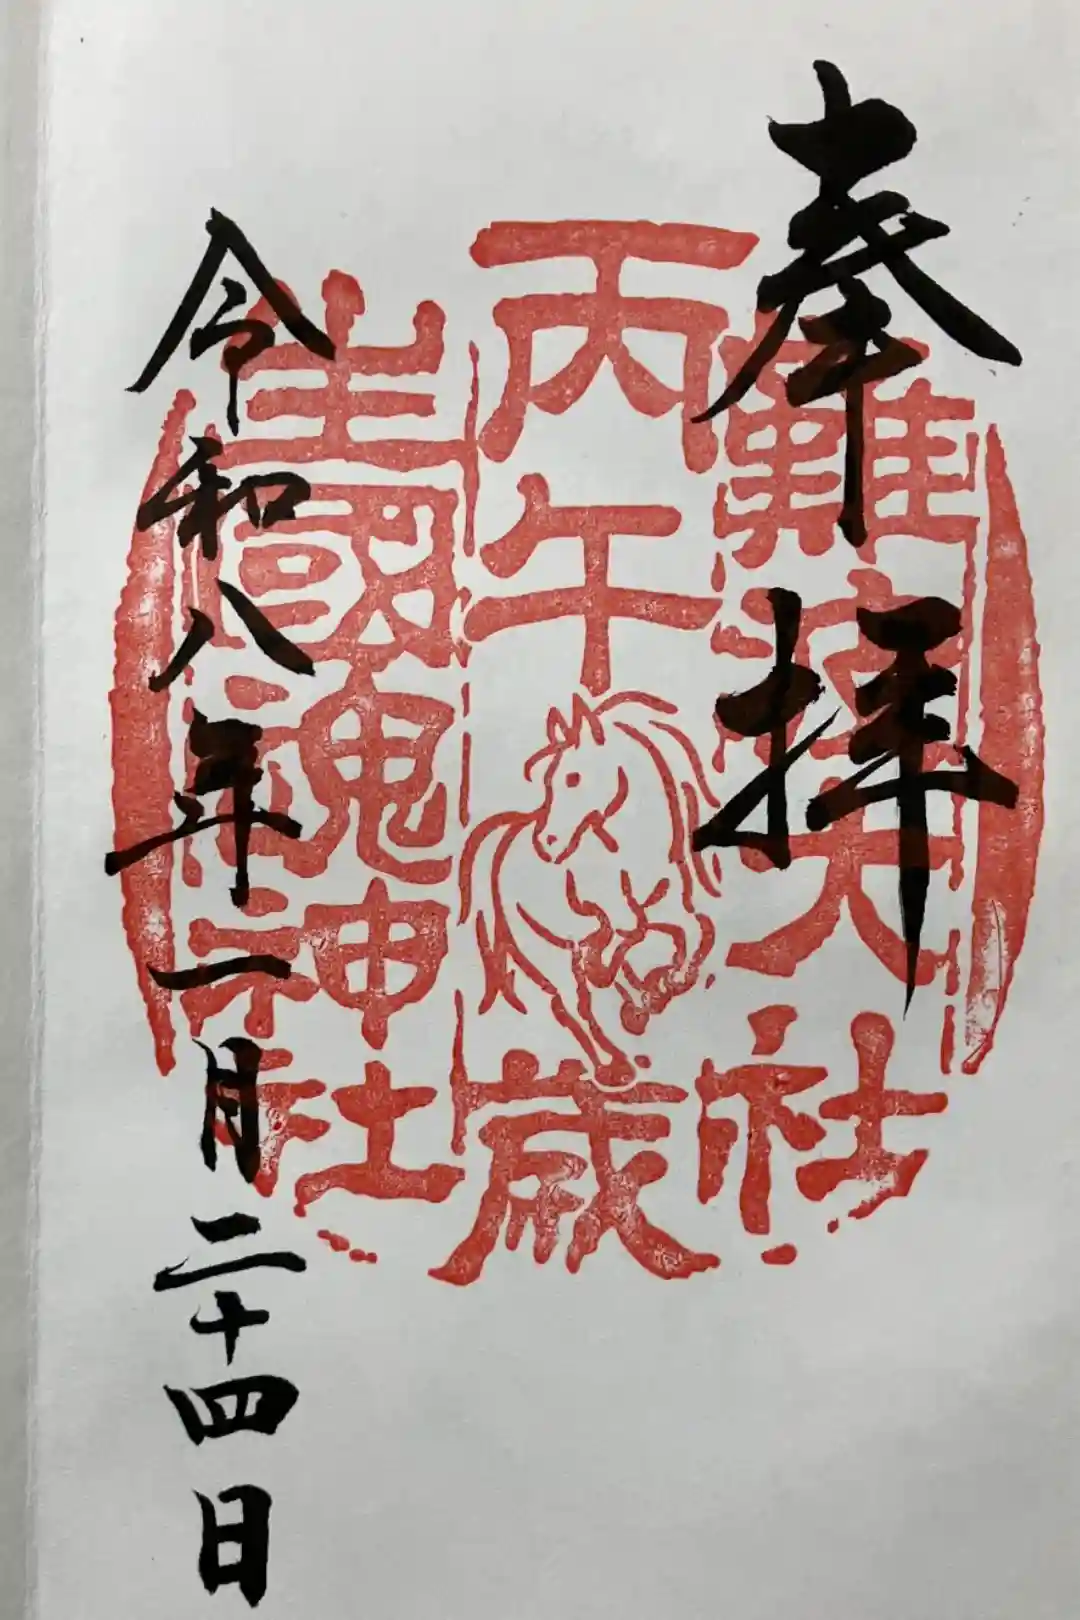 奉拝
難波大社
丙午
歳
生國魂神社
令和八年一月二十四日